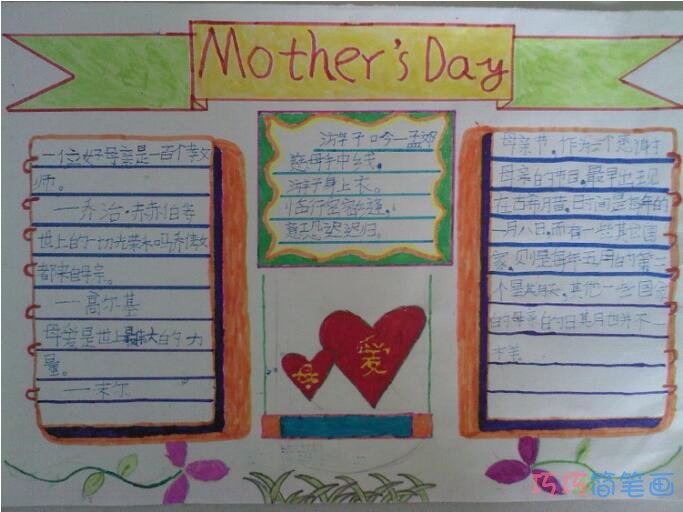 Mother's Day
一位好母亲是一百个教
师。
——乔治·赫伯等
世上的一切光荣和吗乔傲
都来自母亲。
——高尔基
母爱是世上最伟大的力
量。
——末尔
游子吟—孟郊
慈母手中线,
游子身上衣。
临行密密缝,
意恐迟迟归。
爱
母亲节,作为一个感谢
母亲的节日,最早出现
在古希腊,日间是每年的
一月八日,而有一些其它国
家,则是每年五月的第二
个星期天,其他一些国家
的母亲的日其月也并不一
巧巧简笔画